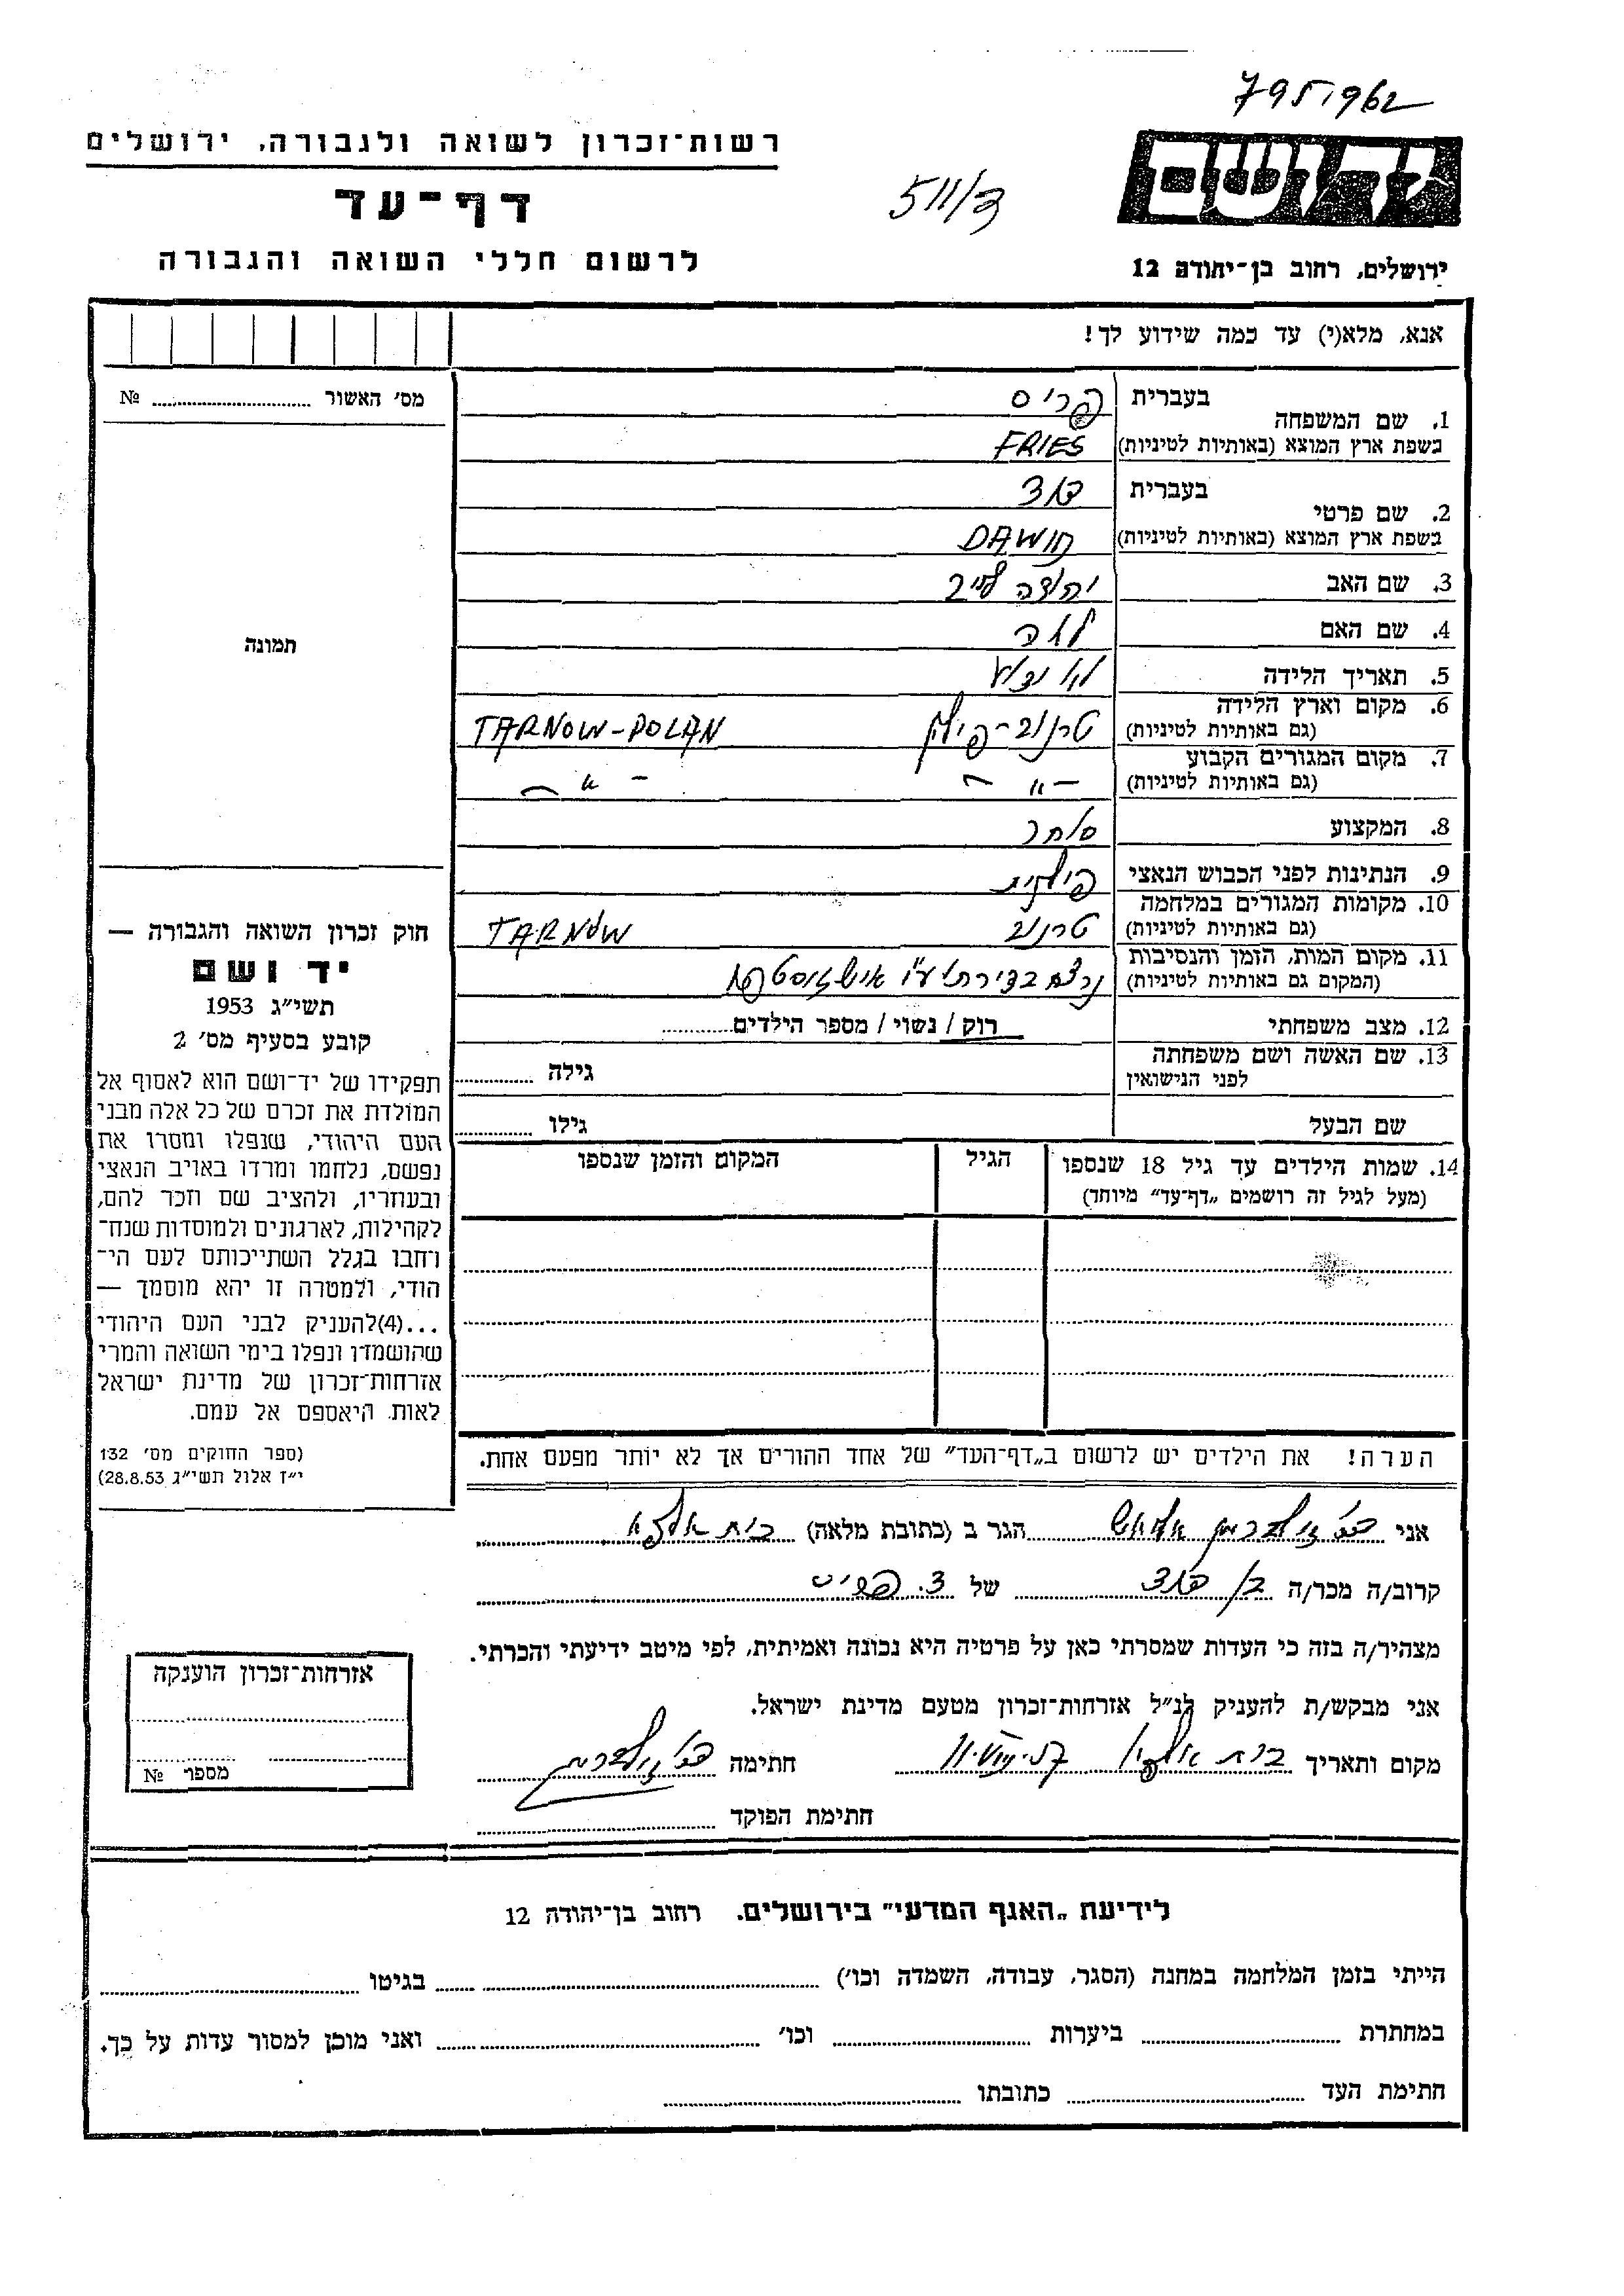 7951962
רשות־זכרון לשואה ולגבורה, ירושלים
יד ושם
511/ד
דף־עד
לרשום חללי השואה והגבורה
ירושלים, רחוב בן־יהודה 12
אנא, מלא(י) עד כמה שידוע לך!
מס' האשור № 
1. שם המשפחה בעברית פריס
בשפת ארץ המוצא (באותיות לטיניות) FRIES
2. שם פרטי בעברית דוד
בשפת ארץ המוצא (באותיות לטיניות) DAWID
3. שם האב יהודה לייב
4. שם האם לאה
תמונה
5. תאריך הלידה לא ידוע
6. מקום וארץ הלידה (גם באותיות לטיניות) טרנוב־פולין TARNOW-POLAN
7. מקום המגורים הקבוע (גם באותיות לטיניות) – " – – " –
8. המקצוע סוחר
9. הנתינות לפני הכבוש הנאצי פולנית
10. מקומות המגורים במלחמה (גם באותיות לטיניות) טרנוב TARNOW
11. מקום המות, הזמן והנסיבות (המקום גם באותיות לטיניות) נרצח בדירתו ע"י איש גסטפו
12. מצב משפחתי רוק / נשוי / מספר הילדים
13. שם האשה ושם משפחתה לפני הנישואין גילה
שם הבעל גילו
14. שמות הילדים עד גיל 18 שנספו הגיל המקום והזמן שנספו
(מעל לגיל זה רושמים „דף־עד” מיוחד)
חוק זכרון השואה והגבורה —
יד ושם
תשי״ג 1953
קובע בסעיף מס' 2
תפקידו של יד־ושם הוא לאסוף אל
המולדת את זכרם של כל אלה מבני
העם היהודי, שנפלו ומסרו את
נפשם, נלחמו ומרדו באויב הנאצי
ובעוזריו, ולהציב שם וזכר להם,
לקהילות, לארגונים ולמוסדות שנח־
רבו בגלל השתייכותם לעם הי־
הודי, ולמטרה זו יהא מוסמך —
...(4)להעניק לבני העם היהודי
שהושמדו ונפלו בימי השואה והמרי
אזרחות־זכרון של מדינת ישראל
לאות היאספם אל עמם.
(ספר החוקים מס' 132
י״ז אלול תשי״ג 28.8.53)
הערה! את הילדים יש לרשום ב„דף־העד” של אחד ההורים אך לא יותר מפעם אחת.
אני הגר ב (כתובת מלאה) בית אלפא
קרוב/ה מכר/ה בן דוד של ד. פריס
מצהיר/ה בזה כי העדות שמסרתי כאן על פרטיה היא נכונה ואמיתית, לפי מיטב ידיעתי והכרתי.
אני מבקש/ת להעניק לנ״ל אזרחות־זכרון מטעם מדינת ישראל.
מקום ותאריך בית אלפא חתימה
חתימת הפוקד
אזרחות־זכרון הוענקה
מספר №
לידיעת „האגף המדעי” בירושלים. רחוב בן־יהודה 12
הייתי בזמן המלחמה במחנה (הסגר, עבודה, השמדה וכו') בגיטו
במחתרת ביערות וכו' ואני מוכן למסור עדות על כך.
חתימת העד כתובתו